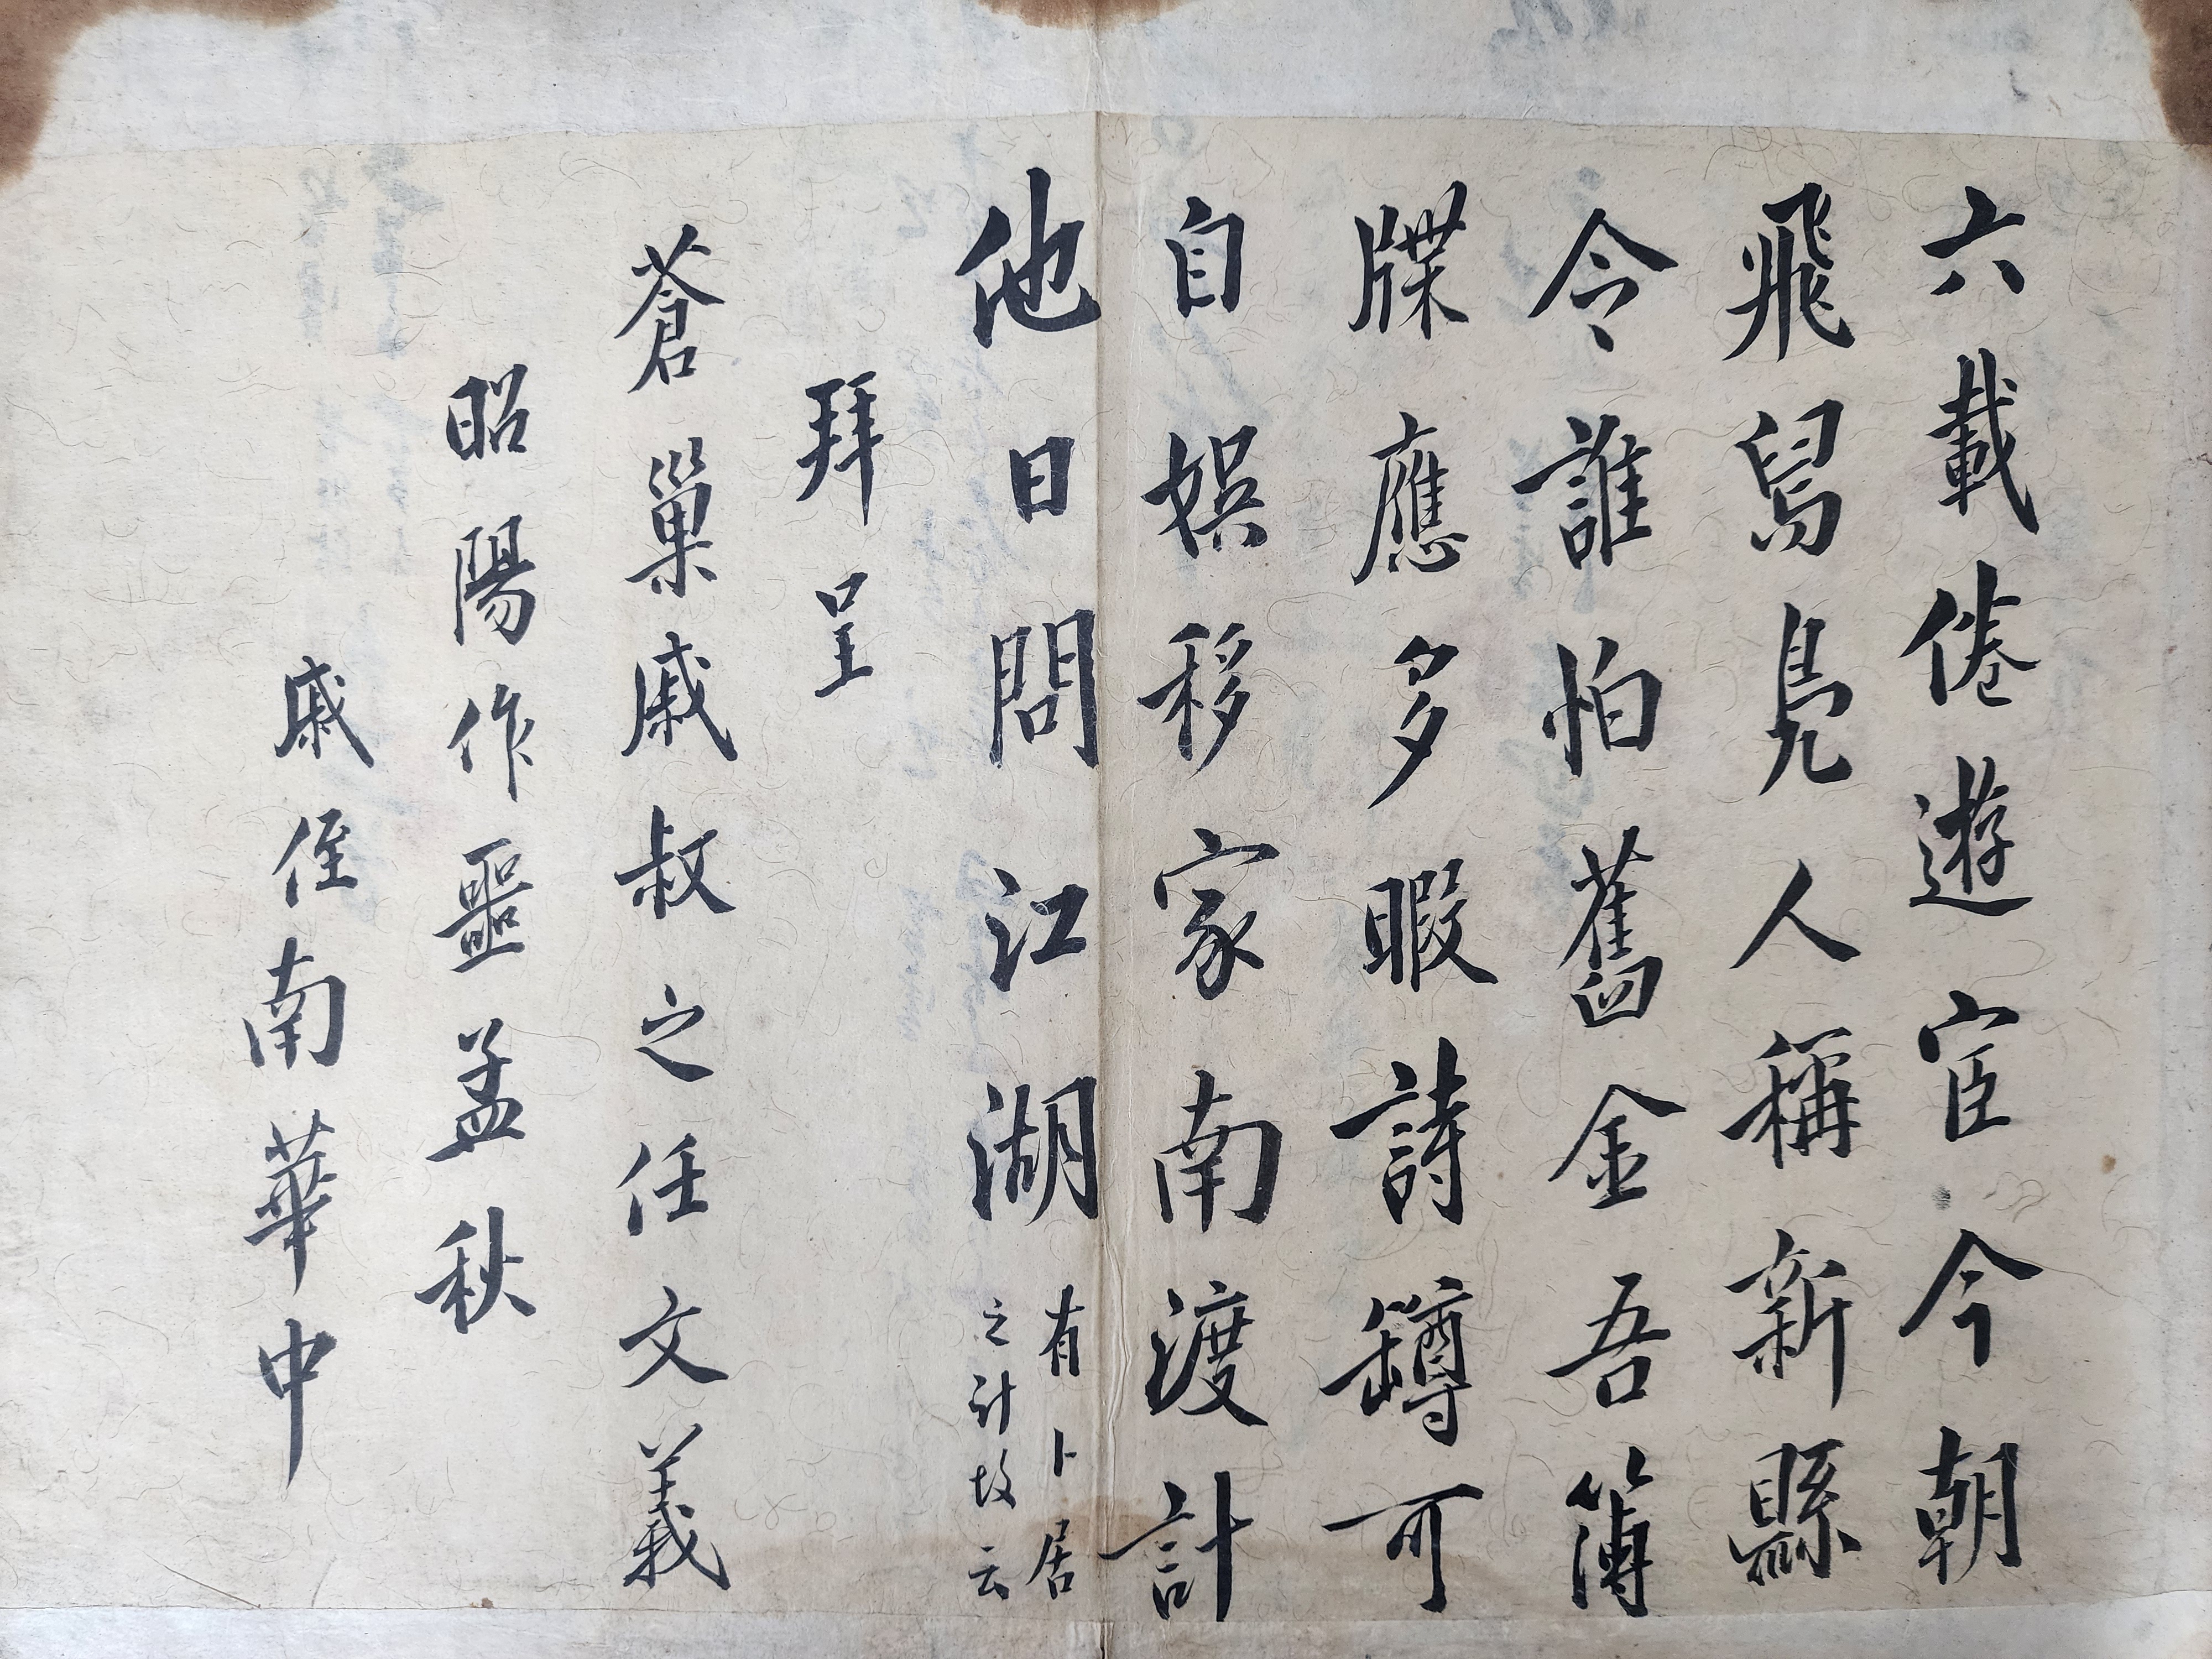 六載倦遊宦今朝
飛舄鳧人稱新縣
令誰怕舊金吾簿
牒應多暇詩罇可
自娛移家南渡計
他日問江湖
有卜居
之計故云
拜呈
蒼巢戚叔之任文義
昭陽作噩孟秋
戚侄南華中